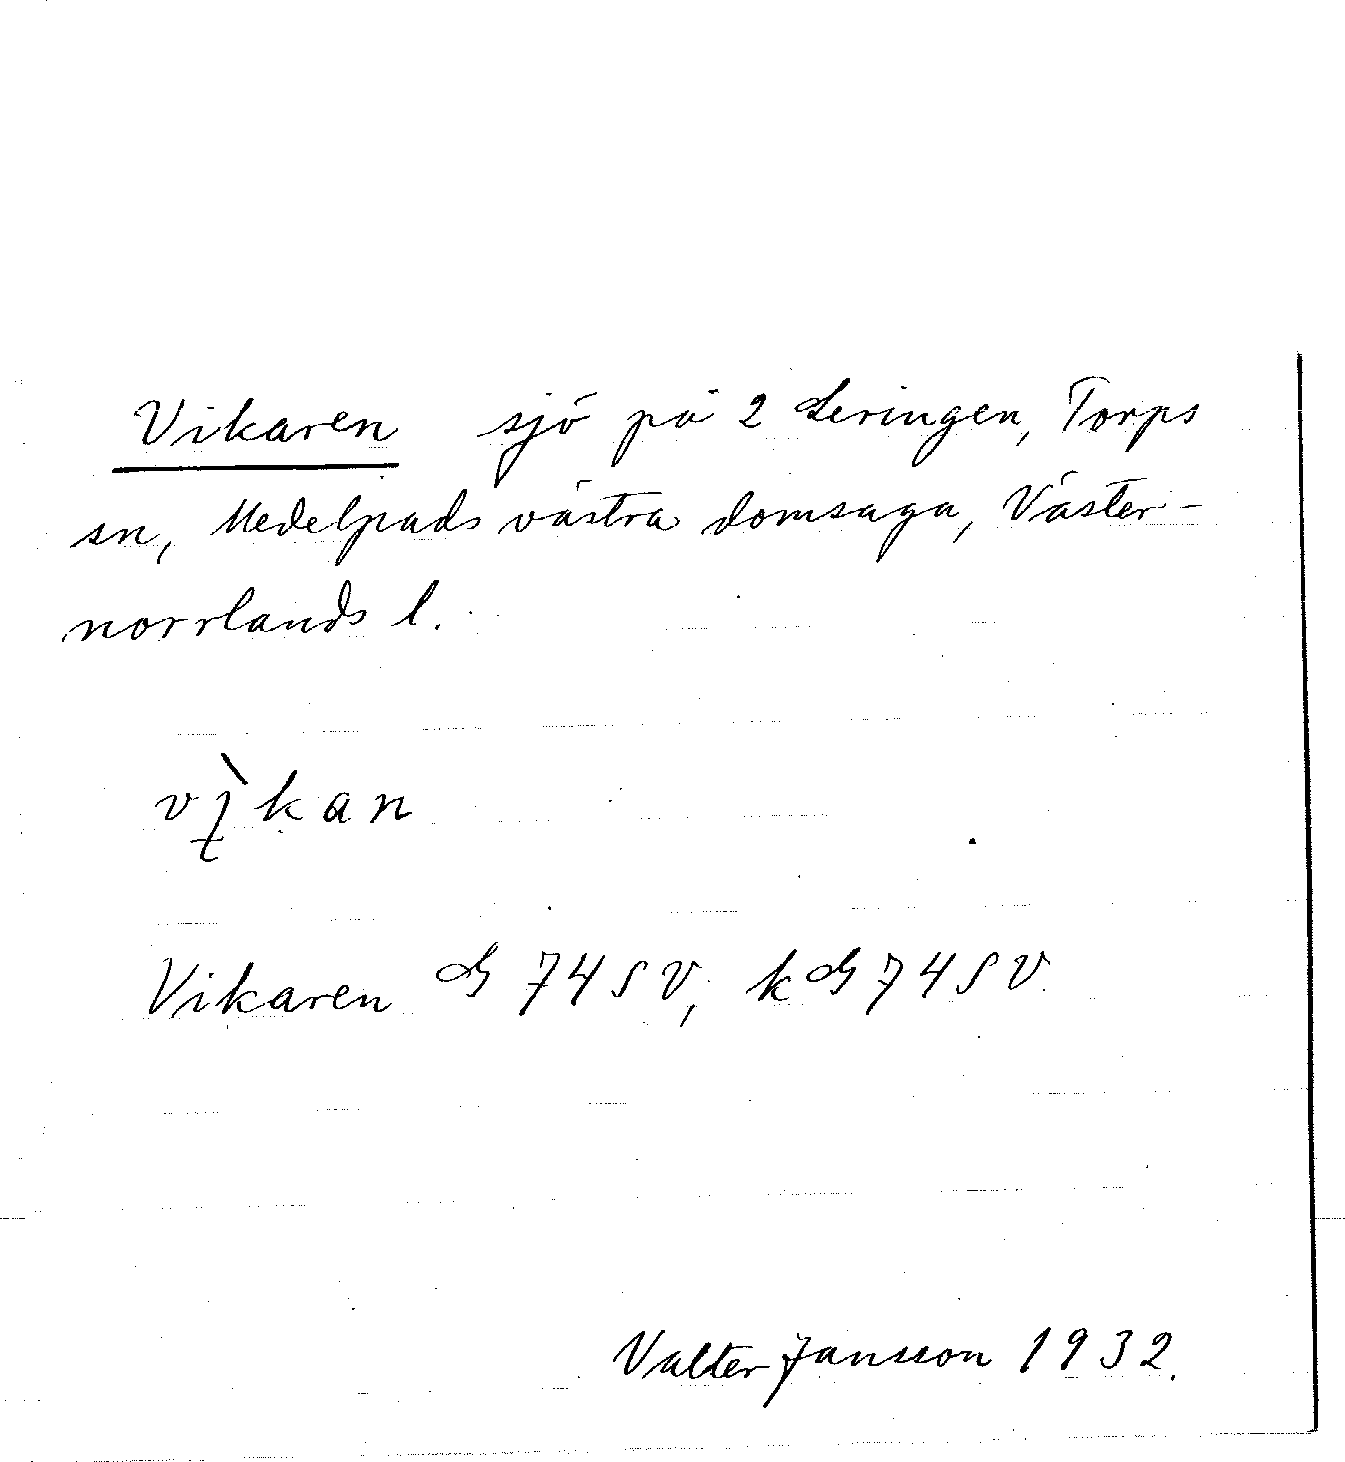 Vikaren sjö på 2 Leringen, Torps
sn, Medelpads västra domsaga, Väster-
norrlands l.
vìkan
Vikaren G 74 SV, kG 74 SV
Valter Jansson 1932.